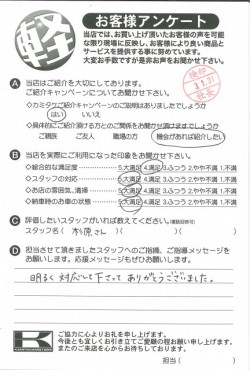 軽
お客様アンケート
当店では、お買い上げ頂いたお客様の声を可能
な限り現場に反映し、お客様により良い商品と
サービスを提供する事に努めております。
大変お手数ですが是非お声をお聞かせ下さい。
A 当店はご紹介を大切にしてあります。
ご紹介キャンペーンについてお聞かせ下さい。
◇カミタケご紹介キャンペーンのご説明はありましたでしょうか
はい いいえ
◇具体的にご紹介頂ける方とのご関係をお聞かせ頂けますでしょうか
ご親族 ご友人 職場の方 機会があれば紹介したい
B 当店を実際にご利用になった印象をお聞かせ下さい。
◇総合的な満足度 5.大満足 4.満足 3.ふつう 2.やや不満 1.不満
◇スタッフの対応 5.大満足 4.満足 3.ふつう 2.やや不満 1.不満
◇お店の雰囲気、清掃 5.大満足 4.満足 3.ふつう 2.やや不満 1.不満
◇納車時のお車の状態 5.大満足 4.満足 3.ふつう 2.やや不満 1.不満
C 評価したいスタッフがいれば教えてください。(複数回答可)
スタッフ名( 杉原さん )( )
D 担当させて頂きましたスタッフへのご指摘、ご指導メッセージを
お願いします。応援メッセージもぜひお願いします。
明るく対応して下さってありがとうございました。
K
ご協力に心よりお礼を申し上げます。
今後とも宜しくお引き立てご愛顧の程お願い申し上げます。
またのご来店を心からお待ちしております。
担当( )